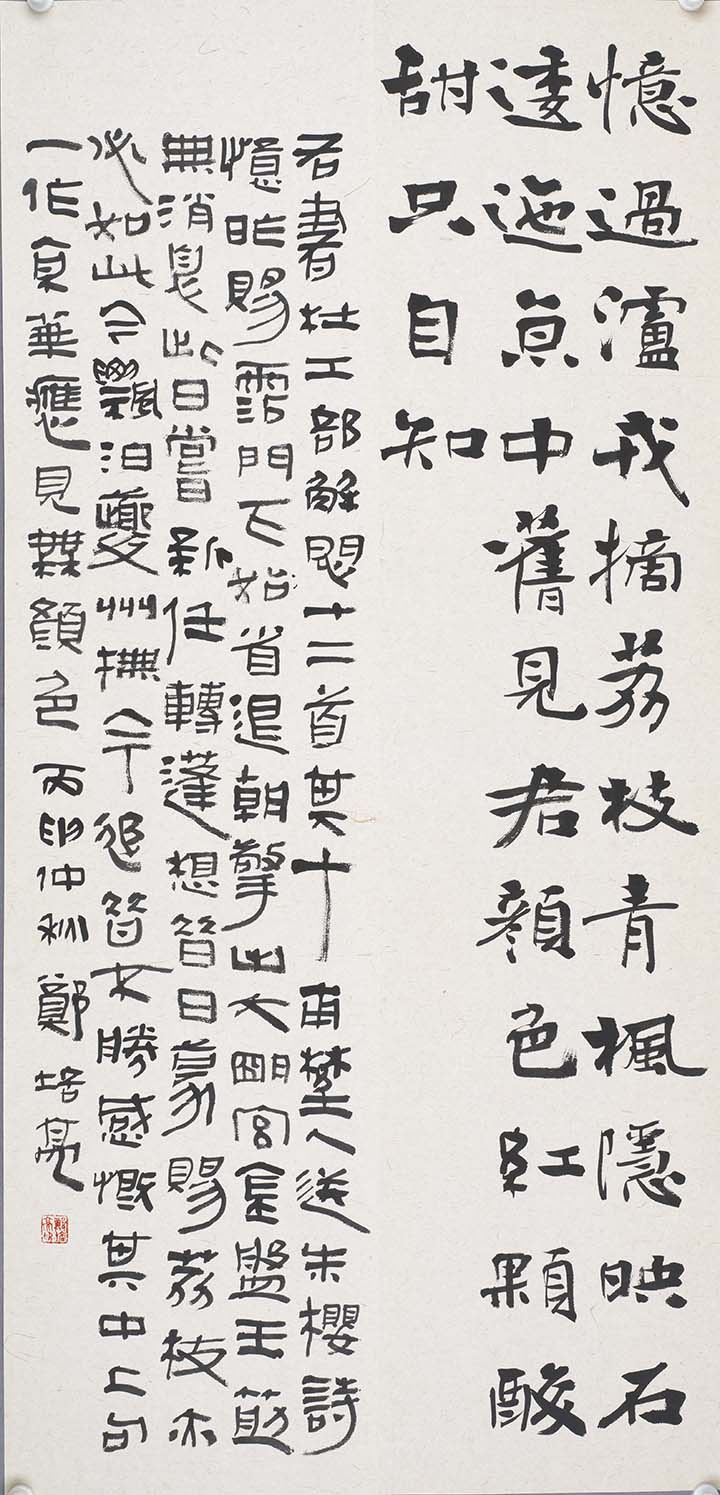 憶過瀘戎摘荔枝青楓隱映石
逶迤京中舊見君顏色紅顆酸
甜只自知
右書杜工部解悶十二首其十 甫埜人送朱櫻詩
憶昨賜霑門下始省退朝擎出大明宮金盤玉筯
無消息此日嘗新任轉蓬想昔日蒙賜荔枝亦
必如此今飄泊夔州撫今追昔不勝感慨其中上句
一作京華應見無顏色 丙申仲秋鄭培亮